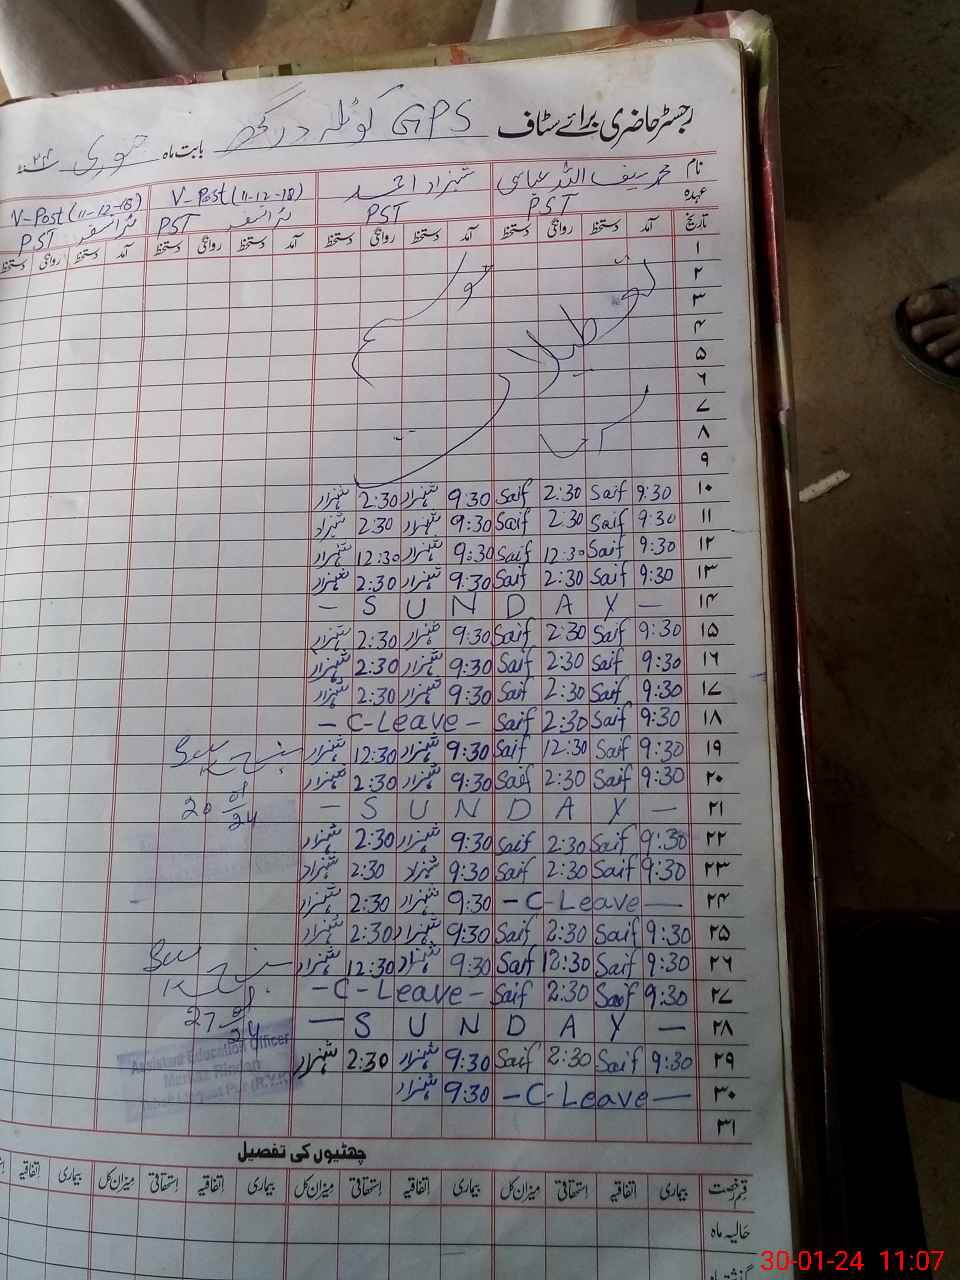 رجسٹر حاضری برائے سٹاف GPS کوٹلہ درگھ بابت ماہ جنوری ۲۴ء
نام محمد سیف اللہ عباسی شہزاد احمد V-Post (11-12-18) V-Post (11-12-18)
عہدہ PST PST ٹرانسفر PST ٹرانسفر PST
تاریخ آمد دستخط روانگی دستخط آمد دستخط روانگی دستخط آمد دستخط روانگی دستخط آمد دستخط روانگی دستخط
۱
۲
۳
۴
۵
۶
۷
۸
۹
تعطیلات موسم سرما
۱۰ 9:30 Saif 2:30 Saif 9:30 شہزاد 2:30 شہزاد
۱۱ 9:30 Saif 2:30 Saif 9:30 شہزاد 2:30 شہزاد
۱۲ 9:30 Saif 12:30 Saif 9:30 شہزاد 12:30 شہزاد
۱۳ 9:30 Saif 2:30 Saif 9:30 شہزاد 2:30 شہزاد
۱۴ — S U N D A Y —
۱۵ 9:30 Saif 2:30 Saif 9:30 شہزاد 2:30 شہزاد
۱۶ 9:30 Saif 2:30 Saif 9:30 شہزاد 2:30 شہزاد
۱۷ 9:30 Saif 2:30 Saif 9:30 شہزاد 2:30 شہزاد
۱۸ 9:30 Saif 2:30 Saif - C-Leave -
۱۹ 9:30 Saif 12:30 Saif 9:30 شہزاد 12:30 شہزاد
۲۰ 9:30 Saif 2:30 Saif 9:30 شہزاد 2:30 شہزاد
۲۱ — S U N D A Y —
20 01/24
۲۲ 9:30 Saif 2:30 Saif 9:30 شہزاد 2:30 شہزاد
۲۳ 9:30 Saif 2:30 Saif 9:30 شہزاد 2:30 شہزاد
۲۴ - C-Leave — 9:30 شہزاد 2:30 شہزاد
۲۵ 9:30 Saif 2:30 Saif 9:30 شہزاد 2:30 شہزاد
۲۶ 9:30 Saif 12:30 Saif 9:30 شہزاد 12:30 شہزاد
۲۷ 9:30 Saif 2:30 Saif - C-Leave -
۲۸ — S U N D A Y —
27 01/24
۲۹ 9:30 Saif 2:30 Saif 9:30 شہزاد 2:30 شہزاد
۳۰ - C-Leave — 9:30 شہزاد
۳۱
Assistant Education Officer
Markaz
(R.Y.K)
چھٹیوں کی تفصیل
قسم رخصت بیماری اتفاقیہ استحقاقی میزان کل بیماری اتفاقیہ استحقاقی میزان کل بیماری اتفاقیہ استحقاقی میزان کل بیماری اتفاقیہ
حالیہ ماہ
گذشتہ ماہ
30-01-24 11:07